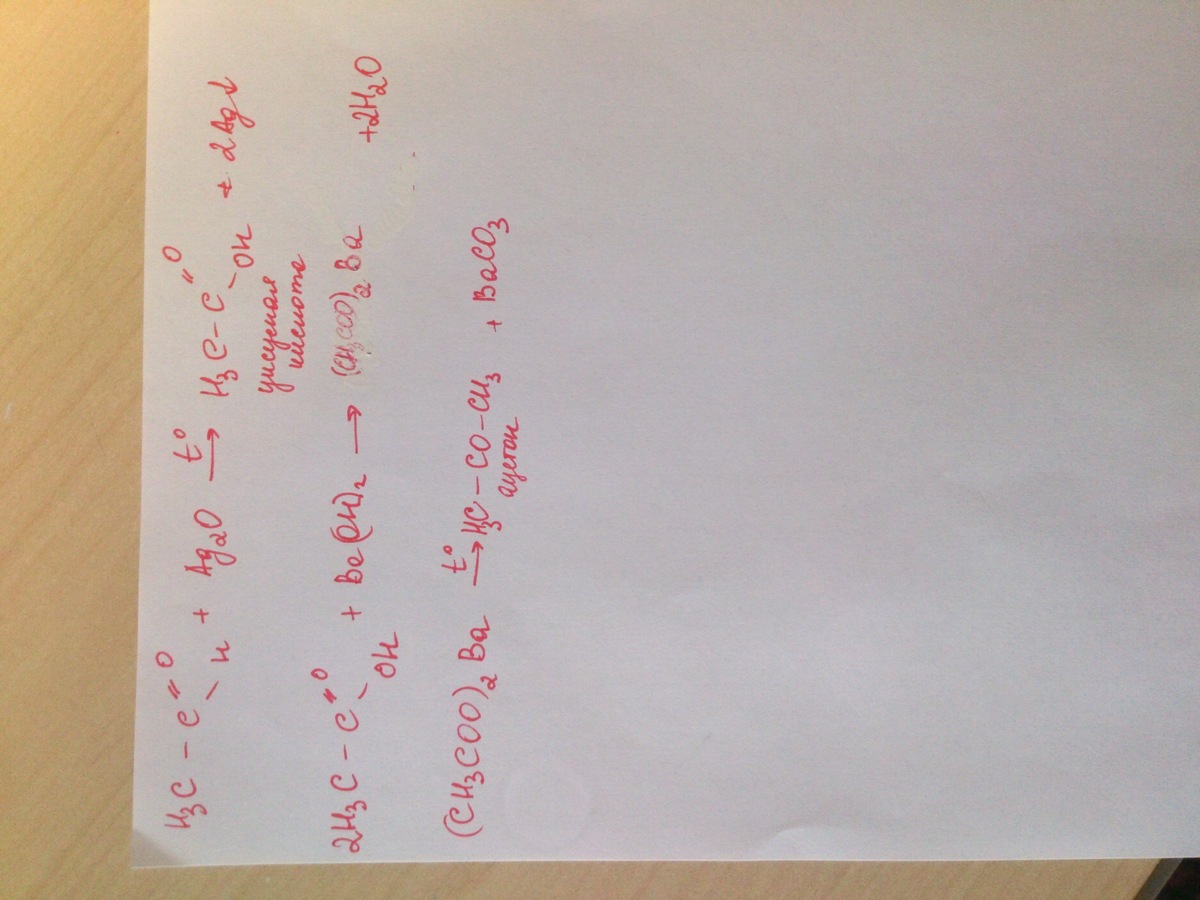 H₃C – C =O –H + Ag₂O t° → H₃C – C =O –OH + 2Ag↓
уксусная
кислота
2H₃C – C =O –OH + Ba(OH)₂ → (CH₃COO)₂Ba + 2H₂O
(CH₃COO)₂Ba t° → H₃C – CO – CH₃ + BaCO₃
ацетон